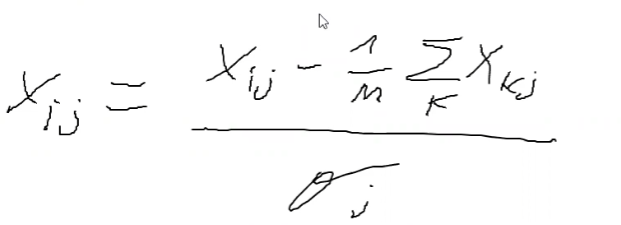 X_{ij} = \frac{X_{ij} - \frac{1}{m} \sum_{k} X_{kj}}{\sigma_j}